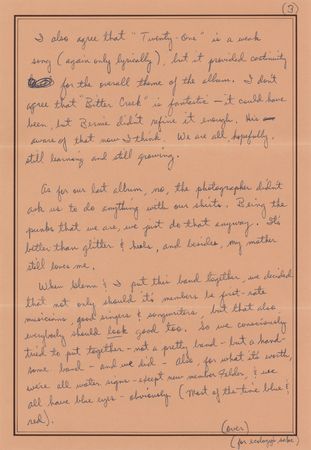 (3)
I also agree that "Twenty-One" is a weak
song (again only lyrically), but it provided continuity
for the overall theme of the album. I don't
agree that "Bitter Creek" is fantastic - it could have
been, but Bernie didn't refine it enough. He's
aware of that now I think. We are all, hopefully,
still learning and still growing.
As for our last album, no, the photographer didn't
ask us to do anything with our shirts. Being the
punks that we are, we just do that anyway. It's
better than glitter & heels, and besides, my mother
still loves me.
When Glenn & I put this band together, we decided
that not only should its members be first-rate
musicians, good singers & songwriters, but that also
everybody should look good too. So we consciously
tried to put together - not a pretty band - but a hand-
some band - and we did - also, for what it's worth,
we're all water signs - except new member Felder, & we
all have blue eyes - obviously (most of the time blue &
red).
(over)
(for ecology's sake)